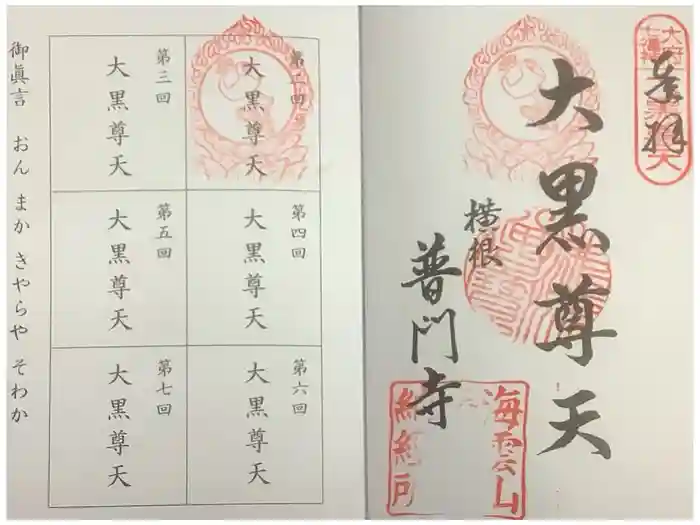 奉拝
大黒尊天
横根
普門寺
海雲山
納経所
第二回
大黒尊天
第三回
大黒尊天
第四回
大黒尊天
第五回
大黒尊天
第六回
大黒尊天
第七回
大黒尊天
御眞言 おん まか きやらや そわか